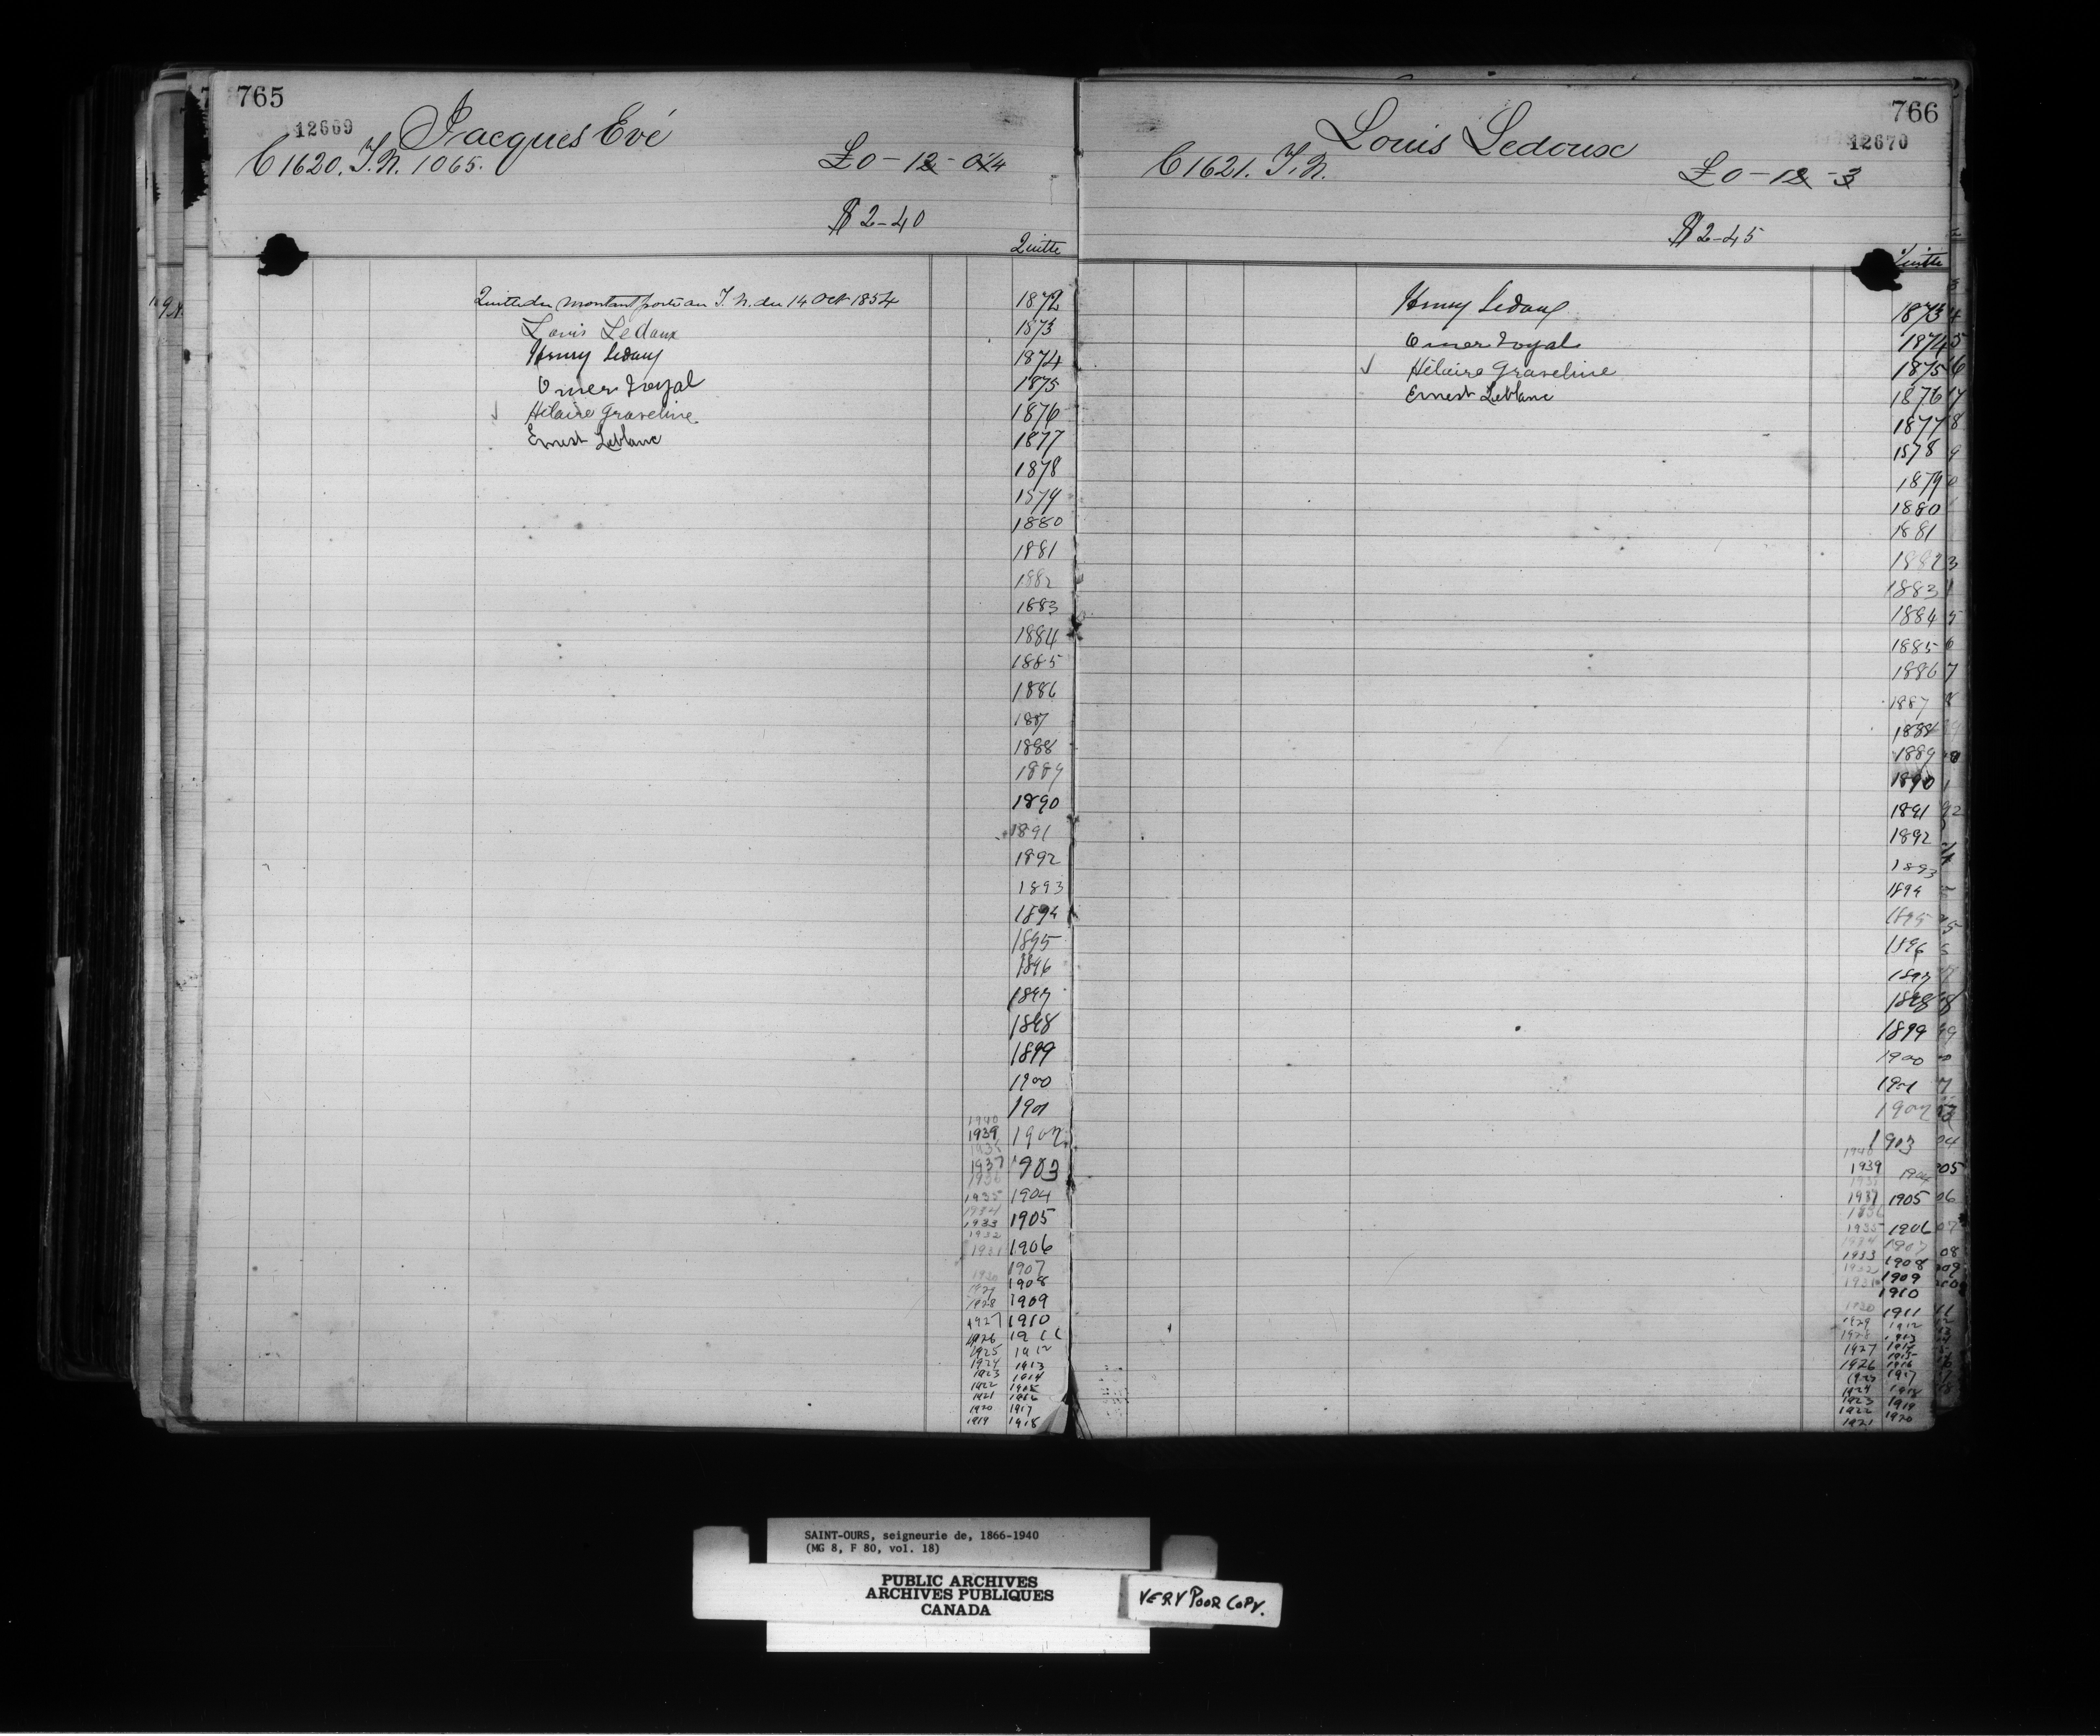 765
12669
Jacques Evé
C 1620. T.N. 1065.
£0-12-0¼
$2-40
Quitte
Quitte du montant porté au T.N. du 14 Oct 1854
Louis Ledoux
Henry Ledoux
Omer Royal
✓ Hélaire Graveline
Ernest Leblanc
1872
1873
1874
1875
1876
1877
1878
1879
1880
1881
1882
1883
1884
1885
1886
1887
1888
1889
1890
1891
1892
1893
1894
1895
1896
1897
1898
1899
1900
1901
1940
1939 1902
1937 1903
1936
1935 1904
1934
1933 1905
1932
1931 1906
1907
1930 1908
1929
1928 1909
1927 1910
1926 1911
1925 1912
1924 1913
1923 1914
1922 1915
1921 1916
1920 1917
1919 1918
766
12670
Louis Ledoux
C 1621. T.N.
£0-12-3
$2-45
Quitte
Henry Ledoux
Omer Royal
✓ Hélaire Graveline
Ernest Leblanc
1873
1874
1875
1876
1877
1878
1879
1880
1881
1882
1883
1884
1885
1886
1887
1888
1889
1890
1891
1892
1893
1894
1895
1896
1897
1898
1899
1900
1901
1902
1903
1940
1939 1904
1937 1905
1936
1935 1906
1934 1907
1933 1908
1932
1931 1909
1910
1930 1911
1929 1912
1928 1913
1927 1914
1915
1926 1916
1925 1917
1924 1918
1923 1919
1922 1920
1921
SAINT-OURS, seigneurie de, 1866-1940
(MG 8, F 80, vol. 18)
PUBLIC ARCHIVES
ARCHIVES PUBLIQUES
CANADA
VERY POOR COPY.